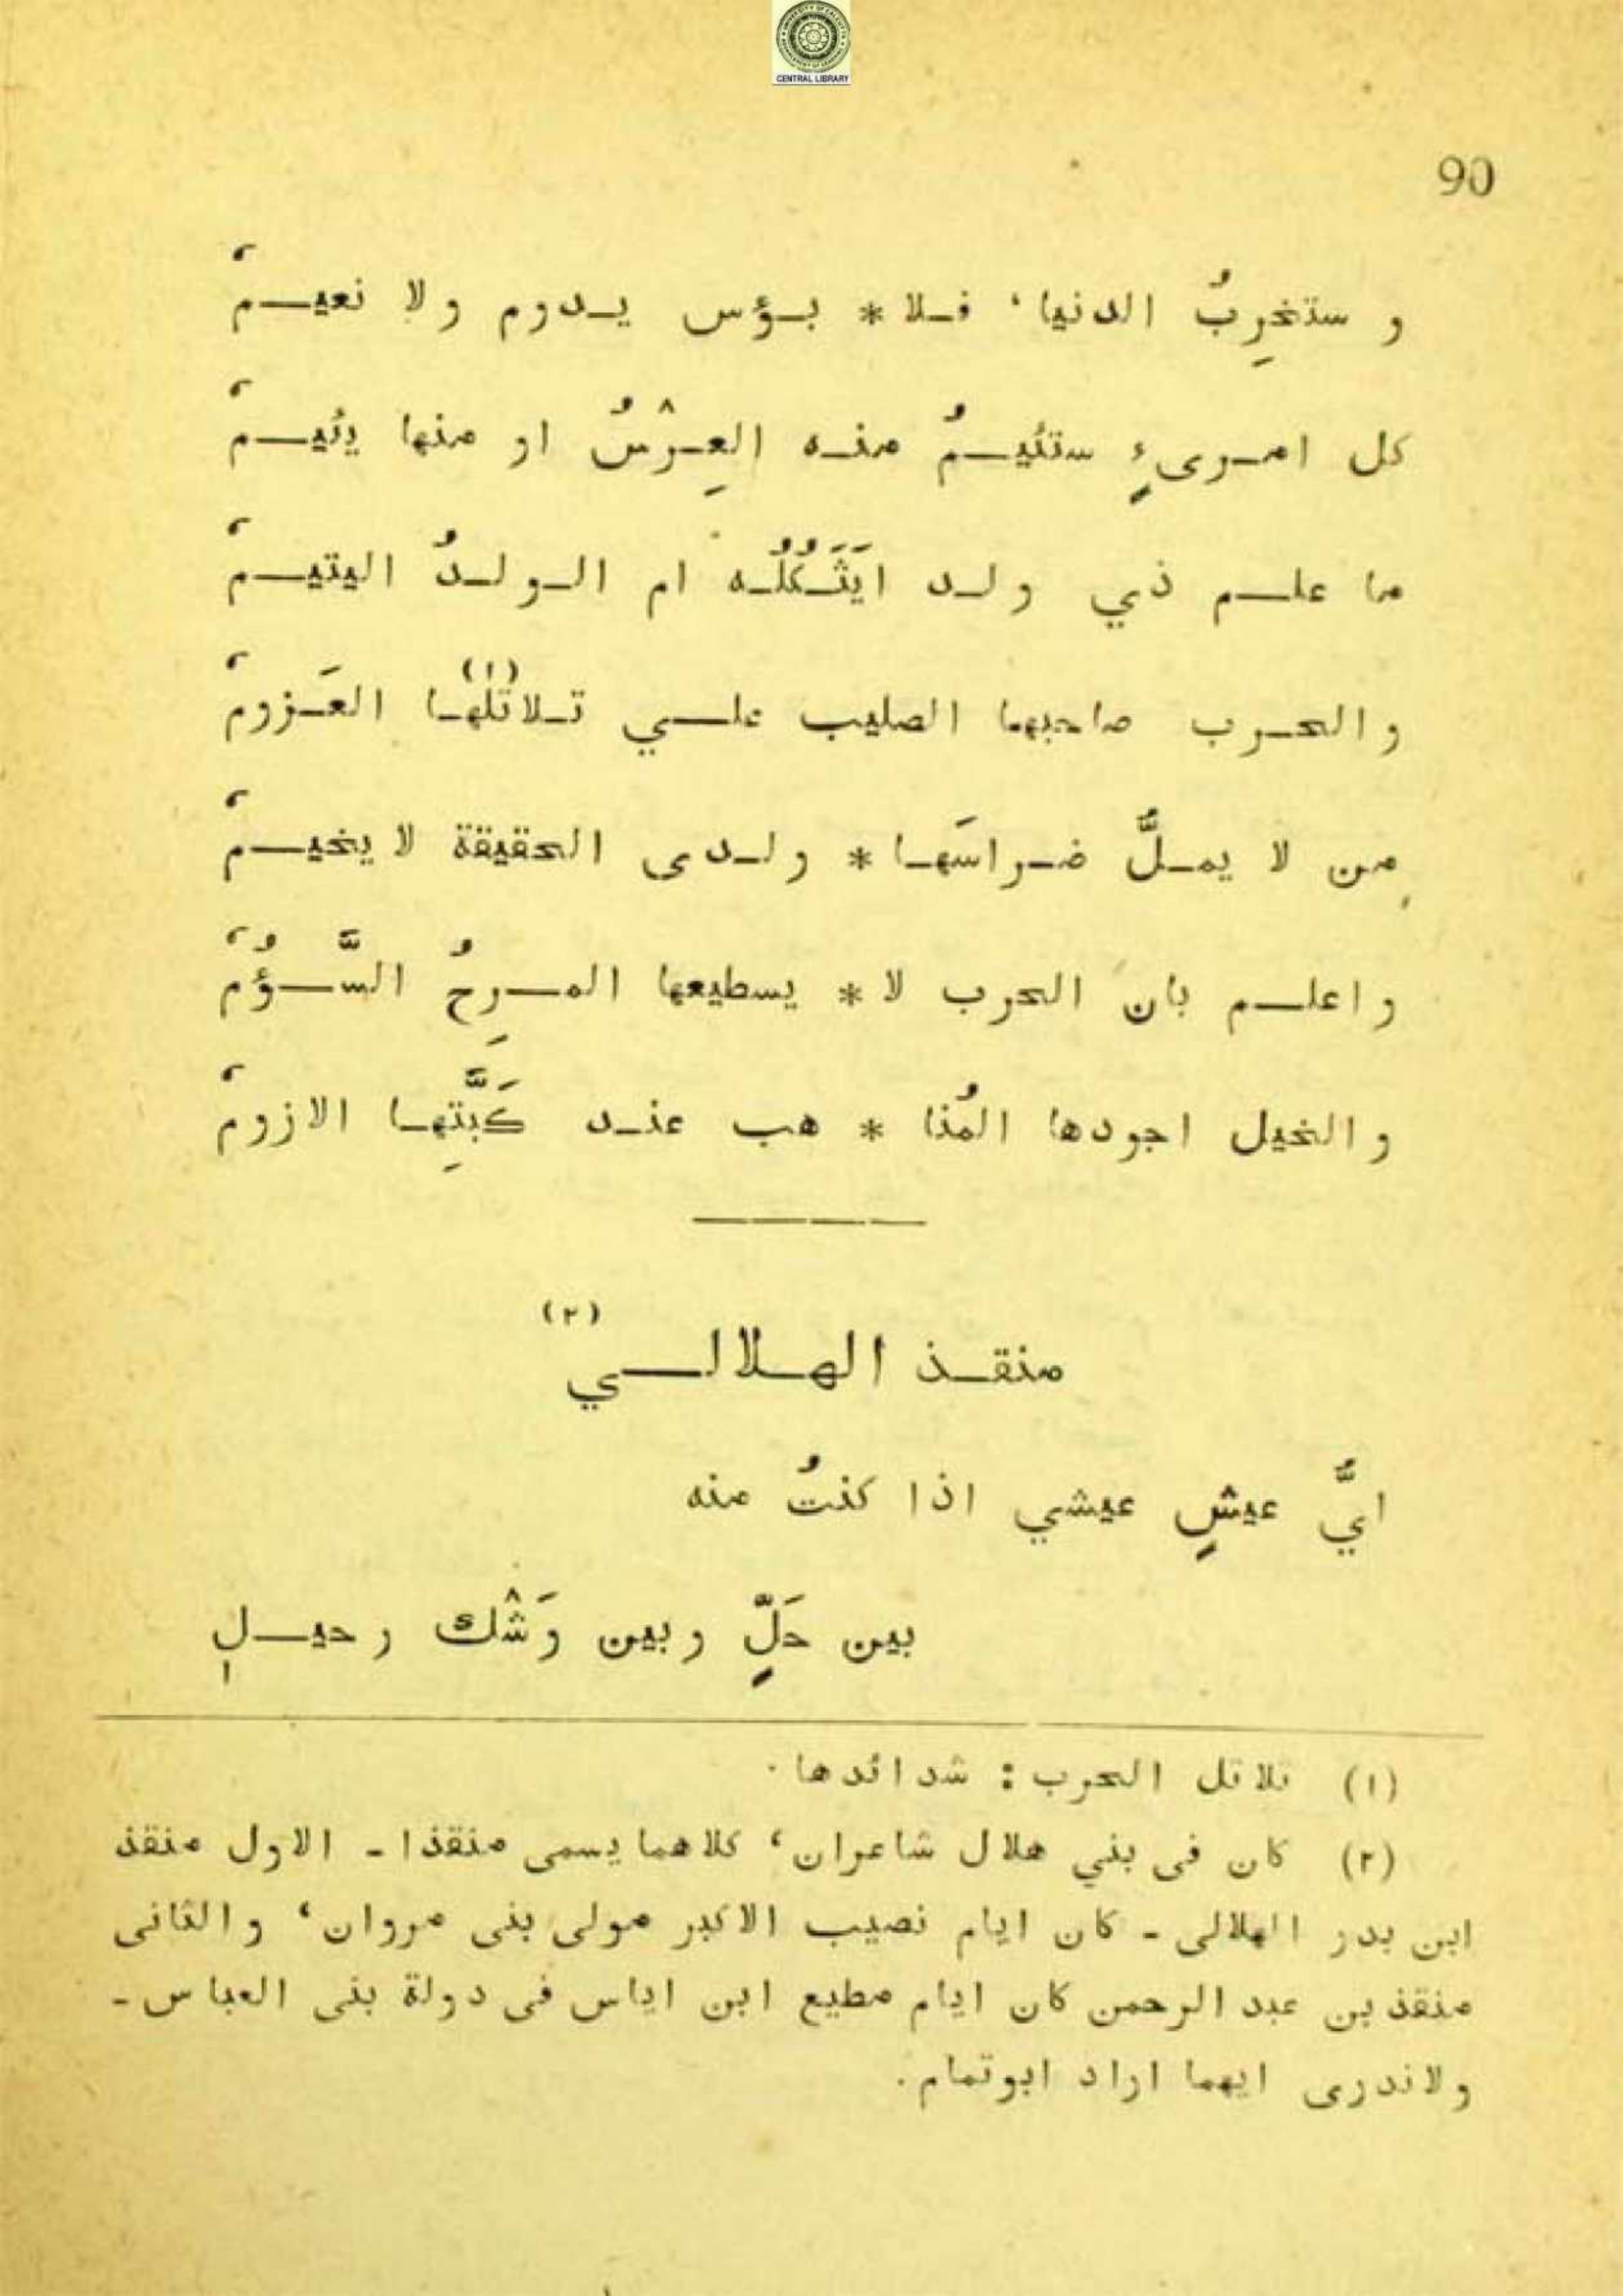 CENTRAL LIBRARY
90
و ستخرِبُ الدنيا، فلا * بؤس يدوم ولا نعيمْ
كل امرىءٍ ستئيمُ منه العِرْسُ او منها يئيمْ
ما علم ذي ولد ايَثَكُلُه ام الولدُ اليتيمْ
والحرب صاحبها الصليب علي تلاتلها (١) العَزومْ
مِن لا يملُّ ضراسَها * ولدى الحقيقة لا يخيمْ
واعلم بان الحرب لا * يسطيعها المرِحُ السَّؤُمْ
والخيل اجودها المُنا * هب عند كَبَّتِها الازومْ
منقذ الهلالي (٢)
ايُّ عيشٍ عيشي اذا كنتُ منه
بين حَلٍّ وبين وَشْك رحيلِ
(١) تلاتل الحرب : شدائدها .
(٢) كان فى بني هلال شاعران، كلاهما يسمى منقذا - الاول منقذ
ابن بدر الهلالى - كان ايام نصيب الاكبر مولى بنى مروان، والثانى
منقذ بن عبد الرحمن كان ايام مطيع ابن اياس فى دولة بنى العباس -
ولاندرى ايهما اراد ابوتمام .